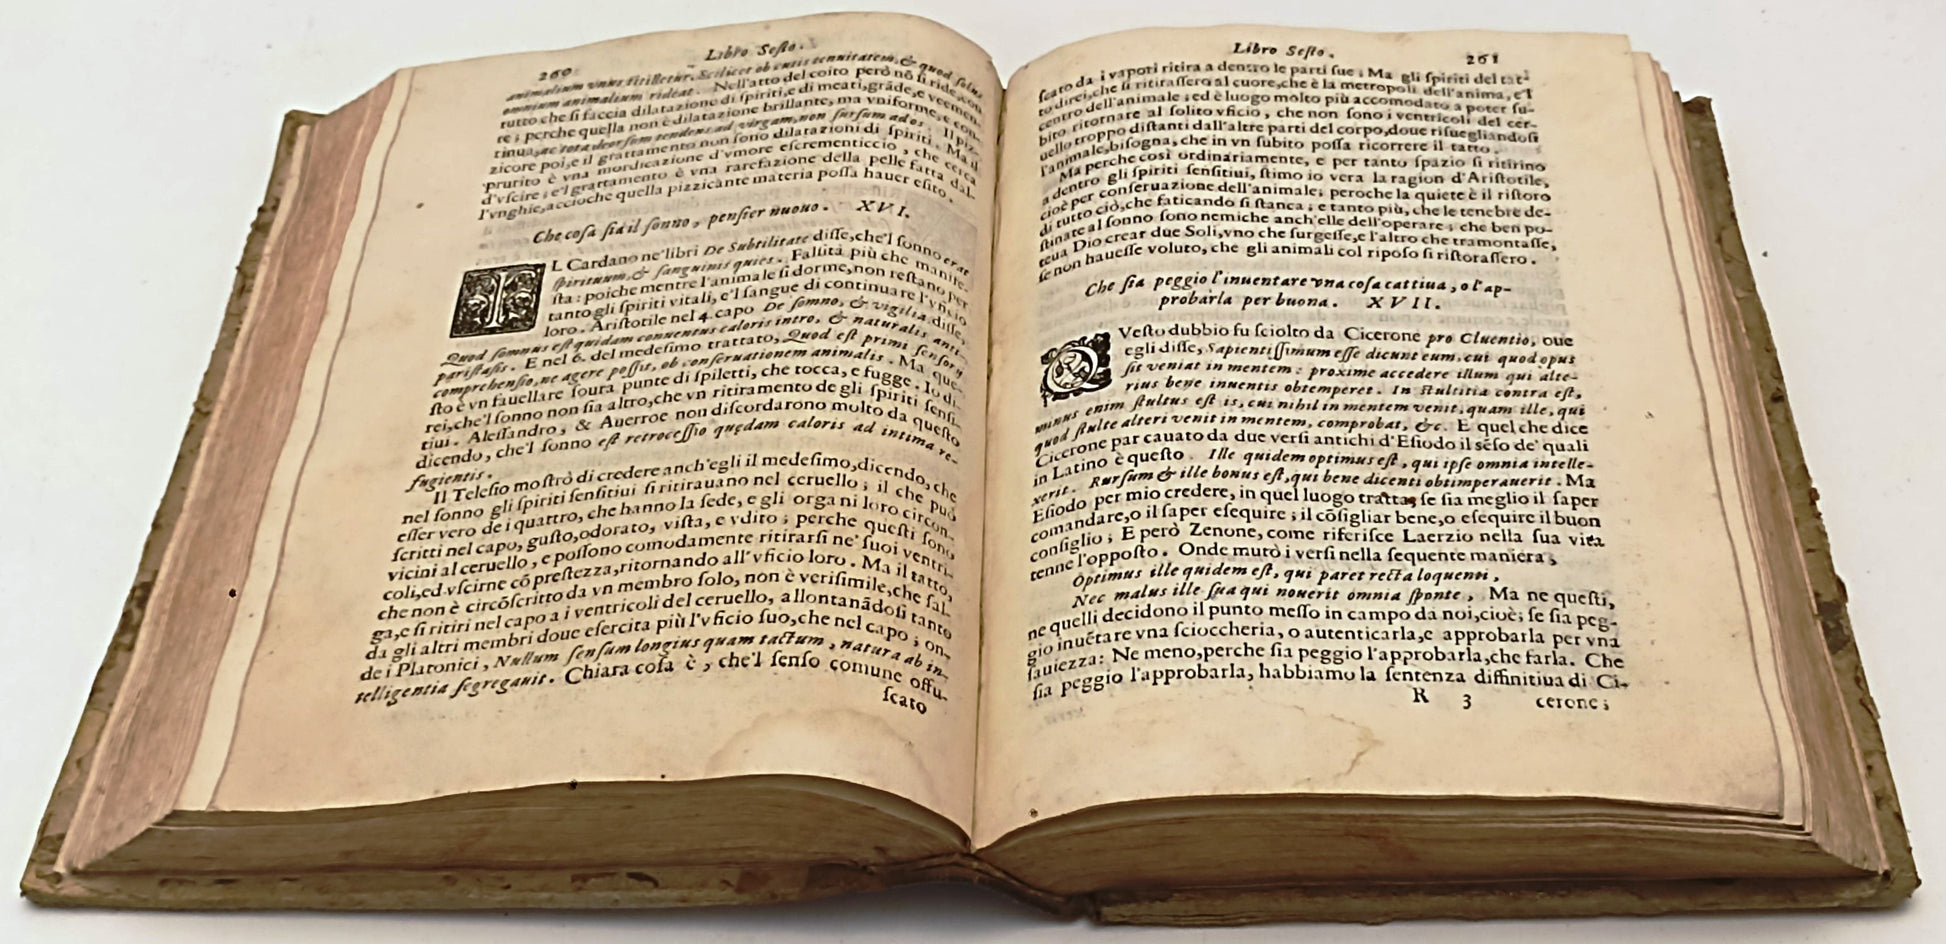 260 Libro Sesto.
animalium vnus titilletur. Scilicet ob cutis tennitatem, & quod solus
omnium animalium rideat. Nell'atto del coito però nõ si ride, con
tutto che si faccia dilatazione di spiriti, e di meati, grãde, e veemen-
te; perche quella non è dilatazione brillante, ma vniforme, e con-
tinua, ac tota deorsum tendens ad virgam, non sursum ad os. Il piz-
zicore poi, e il grattamento non sono dilatazioni di spiriti. Ma il
prurito è vna mordicazione d'vmore escrementiccio, che cerca
d'vscire; e'l grattamento è vna rarefazione della pelle fatta dal-
l'vnghie, accioche quella pizzicante materia possa hauer esito.
Che cosa sia il sonno, pensier nuouo. XVI.
IL Cardano ne' libri De Subtilitate disse, che'l sonno erat
spirituum, & sanguinis quies. Falsità più che manife-
sta: poiche mentre l'animale si dorme, non restano per
tanto gli spiriti vitali, e'l sangue di continuare l'vficio
loro. Aristotile nel 4. capo De somno, & vigilia disse,
Quod somnus est quidam conuentus caloris intro, & naturalis anti-
paristasis. E nel 6. del medesimo trattato, Quod est primi sensorij
comprehensio, ne agere possit, ob conseruationem animalis. Ma que-
sto è vn fauellare soura punte di spiletti, che tocca, e fugge. Io di-
rei, che'l sonno non sia altro, che vn ritiramento de gli spiriti sensi-
tiui. Alessandro, & Auerroe non discordarono molto da questo
dicendo, che'l sonno est retrocessio quędam caloris ad intima re-
fugientis.
Il Telesio mostrò di credere anch'egli il medesimo, dicendo, che
nel sonno gli spiriti sensitiui si ritirauano nel ceruello; il che può
esser vero de i quattro, che hanno la sede, e gli organi loro circon-
scritti nel capo, gusto, odorato, vista, e vdito; perche questi sono
vicini al ceruello, e possono comodamente ritirarsi ne' suoi ventri-
coli, ed vscirne cõ prestezza, ritornando all'vficio loro. Ma il tatto,
che non è circõscritto da vn membro solo, non è verisimile, che sal-
ga, e si ritiri nel capo a i ventricoli del ceruello, allontanãdosi tanto
da gli altri membri doue esercita più l'vficio suo, che nel capo; on-
de i Platonici, Nullum sensum longius quam tactum, natura ab in-
telligentia segregauit. Chiara cosa è, che'l senso comune offu-
scato
Libro Sesto. 261
scato da i vapori ritira a dentro le parti sue; Ma gli spiriti del tat-
to direi, che si ritirassero al cuore, che è la metropoli dell'anima, e'l
centro dell'animale; ed è luogo molto più accomodato a poter su-
bito ritornare al solito vficio, che non sono i ventricoli del cer-
uello troppo distanti dall'altre parti del corpo, doue risuegliandosi
l'animale, bisogna, che in vn subito possa ricorrere il tatto.
Ma perche così ordinariamente, e per tanto spazio si ritirino
a dentro gli spiriti sensitiui, stimo io vera la ragion d'Aristotile,
cioè per conseruazione dell'animale; peroche la quiete è il ristoro
di tutto ciò, che faticando si stanca; e tanto più, che le tenebre de-
stinate al sonno sono nemiche anch'elle dell'operare; che ben po-
teua Dio crear due Soli, vno che surgesse, e l'altro che tramontasse,
se non hauesse voluto, che gli animali col riposo si ristorassero.
Che sia peggio l'inuentare vna cosa cattiua, o l'ap-
probarla per buona. XVII.
QVesto dubbio fu sciolto da Cicerone pro Cluentio, oue
egli disse, Sapientissimum esse dicunt eum, cui quod opus
sit veniat in mentem: proxime accedere illum qui alte-
rius bene inuentis obtemperet. In stultitia contra est,
minus enim stultus est is, cui nihil in mentem venit, quam ille, qui
quod stulte alteri venit in mentem, comprobat, &c. E quel che dice
Cicerone par cauato da due versi antichi d'Esiodo il sẽso de' quali
in Latino è questo. Ille quidem optimus est, qui ipse omnia intelle-
xerit. Rursum & ille bonus est, qui bene dicenti obtimperauerit. Ma
Esiodo per mio credere, in quel luogo tratta, se sia meglio il saper
comandare, o il saper esequire; il cõsigliar bene, o esequire il buon
consiglio; E però Zenone, come riferisce Laerzio nella sua vita
tenne l'opposto. Onde mutò i versi nella sequente maniera;
Optimus ille quidem est, qui paret recta loquenti,
Nec malus ille sua qui nouerit omnia sponte, Ma ne questi,
ne quelli decidono il punto messo in campo da noi, cioè; se sia peg-
gio inuẽtare vna scioccheria, o autenticarla, e approbarla per vna
sauiezza: Ne meno, perche sia peggio l'approbarla, che farla. Che
sia peggio l'approbarla, habbiamo la sentenza diffinitiua di Ci-
R 3 cerone;